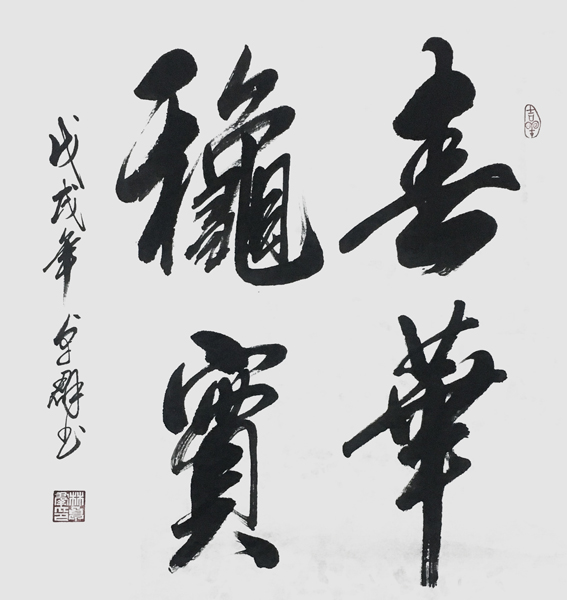 春華
龝實
戊戌年 卓群书